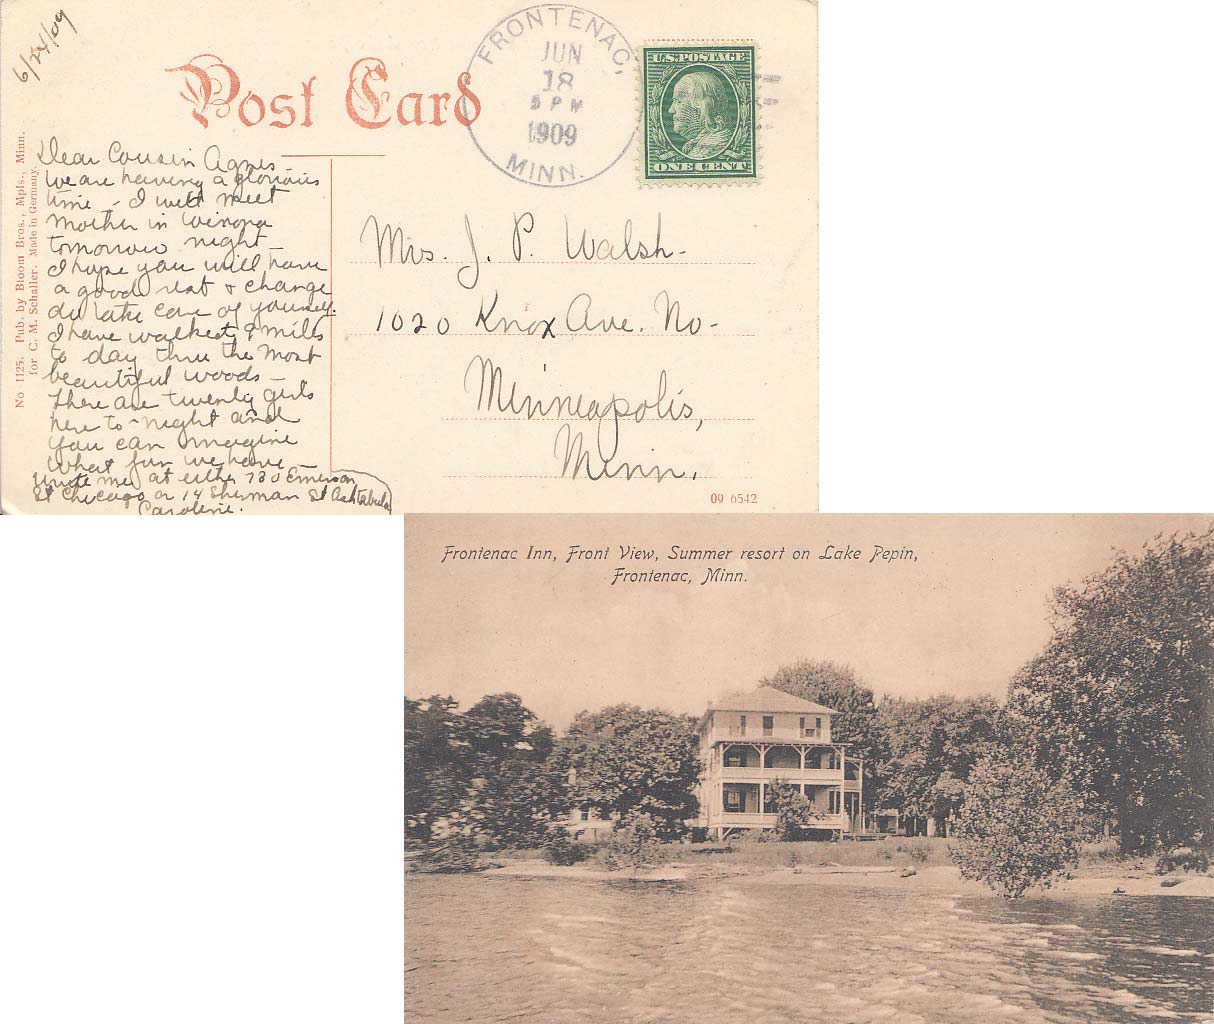 6/24/09
Post Card
FRONTENAC,
JUN
18
5 PM
1909
MINN.
U.S. POSTAGE
ONE CENT
No 1125. Pub. by Bloom Bros., Mpls., Minn.
for C. M. Schaller. Made in Germany.
Dear Cousin Agnes
We are having a glorious
time - I will meet
mother in Winona
tomorrow night -
I hope you will have
a good rest & change
do take care of yourself.
I have walked 9 miles
to day thru the most
beautiful woods -
There are twenty girls
here to-night and
you can imagine
what fun we have -
Write me at either 730 Emerson
St Chicago or 14 Sherman St Ashtabula
Caroline.
Mrs. J. P. Walsh-
1020 Knox Ave. No-
Minneapolis,
Minn.
09 6542
Frontenac Inn, Front View, Summer resort on Lake Pepin,
Frontenac, Minn.